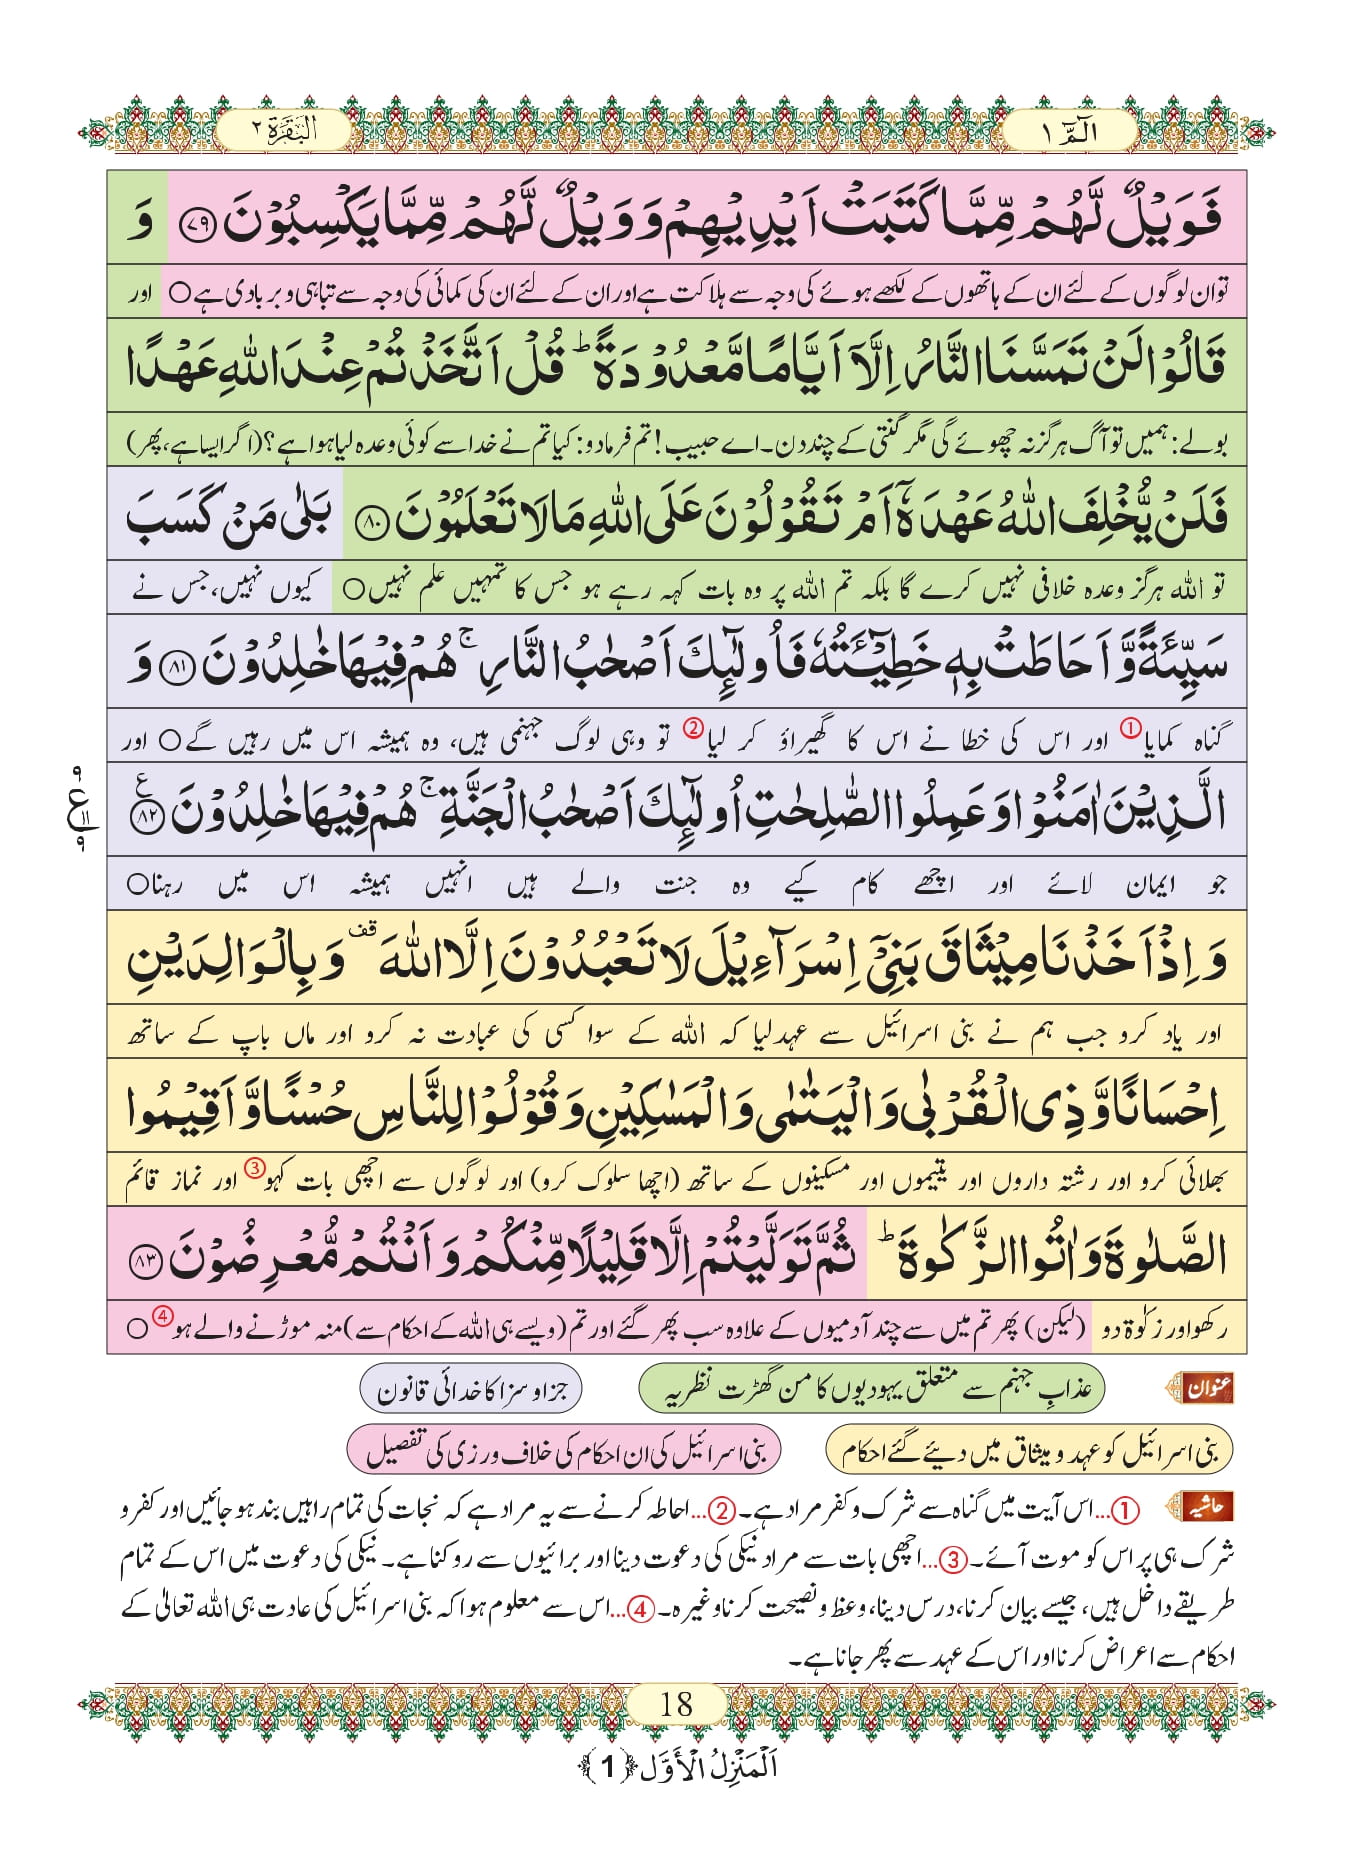 الٓمّٓ ۱
البَقَرَة ۲
فَوَیْلٌ لَّهُمْ مِّمَّا كَتَبَتْ اَیْدِیْهِمْ وَ وَیْلٌ لَّهُمْ مِّمَّا یَكْسِبُوْنَ ﴿۷۹﴾ وَ
تو ان لوگوں کے لئے ان کے ہاتھوں کے لکھے ہوئے کی وجہ سے ہلاکت ہے اور ان کے لئے ان کی کمائی کی وجہ سے تباہی و بربادی ہے ○ اور
قَالُوْا لَنْ تَمَسَّنَا النَّارُ اِلَّاۤ اَیَّامًا مَّعْدُوْدَةًؕ قُلْ اَتَّخَذْتُمْ عِنْدَ اللّٰهِ عَهْدًا
بولے: ہمیں تو آگ ہرگز نہ چھوئے گی مگر گنتی کے چند دن۔ اے حبیب! تم فرمادو: کیا تم نے خدا سے کوئی وعدہ لیا ہوا ہے؟ (اگر ایسا ہے، پھر)
فَلَنْ یُّخْلِفَ اللّٰهُ عَهْدَهٗۤ اَمْ تَقُوْلُوْنَ عَلَى اللّٰهِ مَا لَا تَعْلَمُوْنَ ﴿۸۰﴾ بَلٰى مَنْ كَسَبَ
تو اللہ ہرگز وعدہ خلافی نہیں کرے گا بلکہ تم اللہ پر وہ بات کہہ رہے ہو جس کا تمہیں علم نہیں ○ کیوں نہیں، جس نے
سَیِّئَةً وَّ اَحَاطَتْ بِهٖ خَطِیْٓــٴَـتُهٗ فَاُولٰٓىٕكَ اَصْحٰبُ النَّارِۚ هُمْ فِیْهَا خٰلِدُوْنَ ﴿۸۱﴾ وَ
گناہ کمایا ① اور اس کی خطا نے اس کا گھیراؤ کر لیا ② تو وہی لوگ جہنمی ہیں، وہ ہمیشہ اس میں رہیں گے ○ اور
الَّذِیْنَ اٰمَنُوْا وَ عَمِلُوا الصّٰلِحٰتِ اُولٰٓىٕكَ اَصْحٰبُ الْجَنَّةِۚ هُمْ فِیْهَا خٰلِدُوْنَ ﴿۸۲﴾ ع
۹ ع ۱۱ ۹
جو ایمان لائے اور اچھے کام کیے وہ جنت والے ہیں انہیں ہمیشہ اس میں رہنا ○
وَ اِذْ اَخَذْنَا مِیْثَاقَ بَنِیْۤ اِسْرَآءِیْلَ لَا تَعْبُدُوْنَ اِلَّا اللّٰهَ قف وَ بِالْوَالِدَیْنِ
اور یاد کرو جب ہم نے بنی اسرائیل سے عہد لیا کہ اللہ کے سوا کسی کی عبادت نہ کرو اور ماں باپ کے ساتھ
اِحْسَانًا وَّ ذِی الْقُرْبٰى وَ الْیَتٰمٰى وَ الْمَسٰكِیْنِ وَ قُوْلُوْا لِلنَّاسِ حُسْنًا وَّ اَقِیْمُوا
بھلائی کرو اور رشتہ داروں اور یتیموں اور مسکینوں کے ساتھ (اچھا سلوک کرو) اور لوگوں سے اچھی بات کہو ③ اور نماز قائم
الصَّلٰوةَ وَ اٰتُوا الزَّكٰوةَؕ ثُمَّ تَوَلَّیْتُمْ اِلَّا قَلِیْلًا مِّنْكُمْ وَ اَنْتُمْ مُّعْرِضُوْنَ ﴿۸۳﴾
رکھو اور زکوٰۃ دو (لیکن) پھر تم میں سے چند آدمیوں کے علاوہ سب پھر گئے اور تم (ویسے ہی اللہ کے احکام سے) منہ موڑنے والے ہو ④ ○
عنوان عذابِ جہنم سے متعلق یہودیوں کا من گھڑت نظریہ جزا و سزا کا خدائی قانون
بنی اسرائیل کو عہد و میثاق میں دیئے گئے احکام بنی اسرائیل کی ان احکام کی خلاف ورزی کی تفصیل
حاشیہ ①...اس آیت میں گناہ سے شرک و کفر مراد ہے۔ ②...احاطہ کرنے سے یہ مراد ہے کہ نجات کی تمام راہیں بند ہو جائیں اور کفر و
شرک ہی پر اس کو موت آئے۔ ③...اچھی بات سے مراد نیکی کی دعوت دینا اور برائیوں سے روکنا ہے۔ نیکی کی دعوت میں اس کے تمام
طریقے داخل ہیں، جیسے بیان کرنا، درس دینا، وعظ و نصیحت کرنا وغیرہ۔ ④...اس سے معلوم ہوا کہ بنی اسرائیل کی عادت ہی اللہ تعالیٰ کے
احکام سے اعراض کرنا اور اس کے عہد سے پھر جانا ہے۔
18
اَلْمَنْزِلُ الْاَوَّل ﴿1﴾